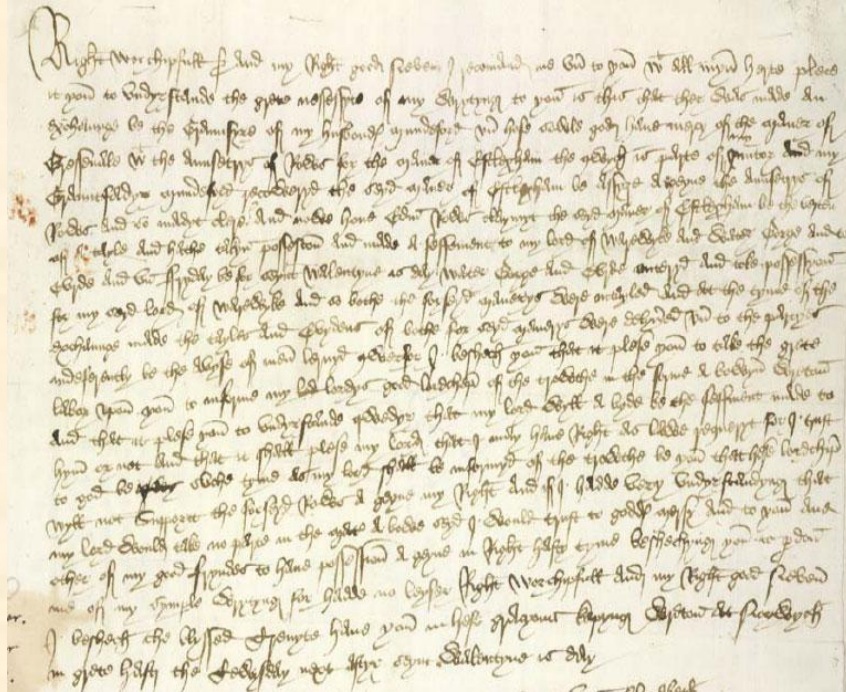 Right worchipfull Ser And my Right good Neveu I recomaund me vn to you wt All myn herte plese
it you to vndyrstande the grete nessessyte of my wrytyng to you is this that ther was made An
exchaunge be the Grauntsyre of my husbond Mundeford vn hose sowle god haue mercy of the maner of
Gressenale wt the Aunsetrys of Rows for the maner of Estlexham the qwych is parte of my Juntor And my
Grauntfadyr Mundeford recoveryd the seyd maner of Estlexham be Assyse A geyne the Aunsetrys of
Rows And so madyt clere And nowe hane Edm Rows claymyt the seyd maner of Estlexham be the vertu
of A tayle And hathe takyn possession And made A feffement to my lord of Warewyke And Water Gorge And to
Curde And vn Fryday be for seynt Walentyne is day Water Gorge And Curde enteryd And toke possessyon
for my seyd lord of Warewyke And so bothe the forseyd manerys were entayled And At the tyme of the
exchaunge made the tayles And Evydens of bothe for seyd manerys were delyveryd vn to the partyes
indeferently be the Avyse of men lernyd qwerfor I beschech you that it plese you to take the grete
labor vpon you to informe my lordys good lordchep of the trowthe in the forme A bovyn wretyn
And that it plese you to vndyrstande qwedyr that my lord wyll A byde be the feffment made to
hym or not And that it shall plese my lord that I may haue Right As lawe requeryt for I trust
to god be swche tyme As my lord shall be informyd of the trowthe be you that hese lordchep
wyll not Support the forseyd Rows A geyne my Right And if I hadde very vndyrstandyng that
my lord would take no parte in the mater A bove seyd I would trust to godds mersy And to you And
other of my good Fryndes to haue possession A geyne in Right hasty tyme beschechyng you to pardon
me of my symple wrytyng for I hadde no leyser Right Worchipfull And my Right good Neveu
I beschech the blyssed Trenyte haue you in hese gracyous kepyng wretyn At Norwych
in grete hast the Tewysday next Aftyr seynt Walentyne is day